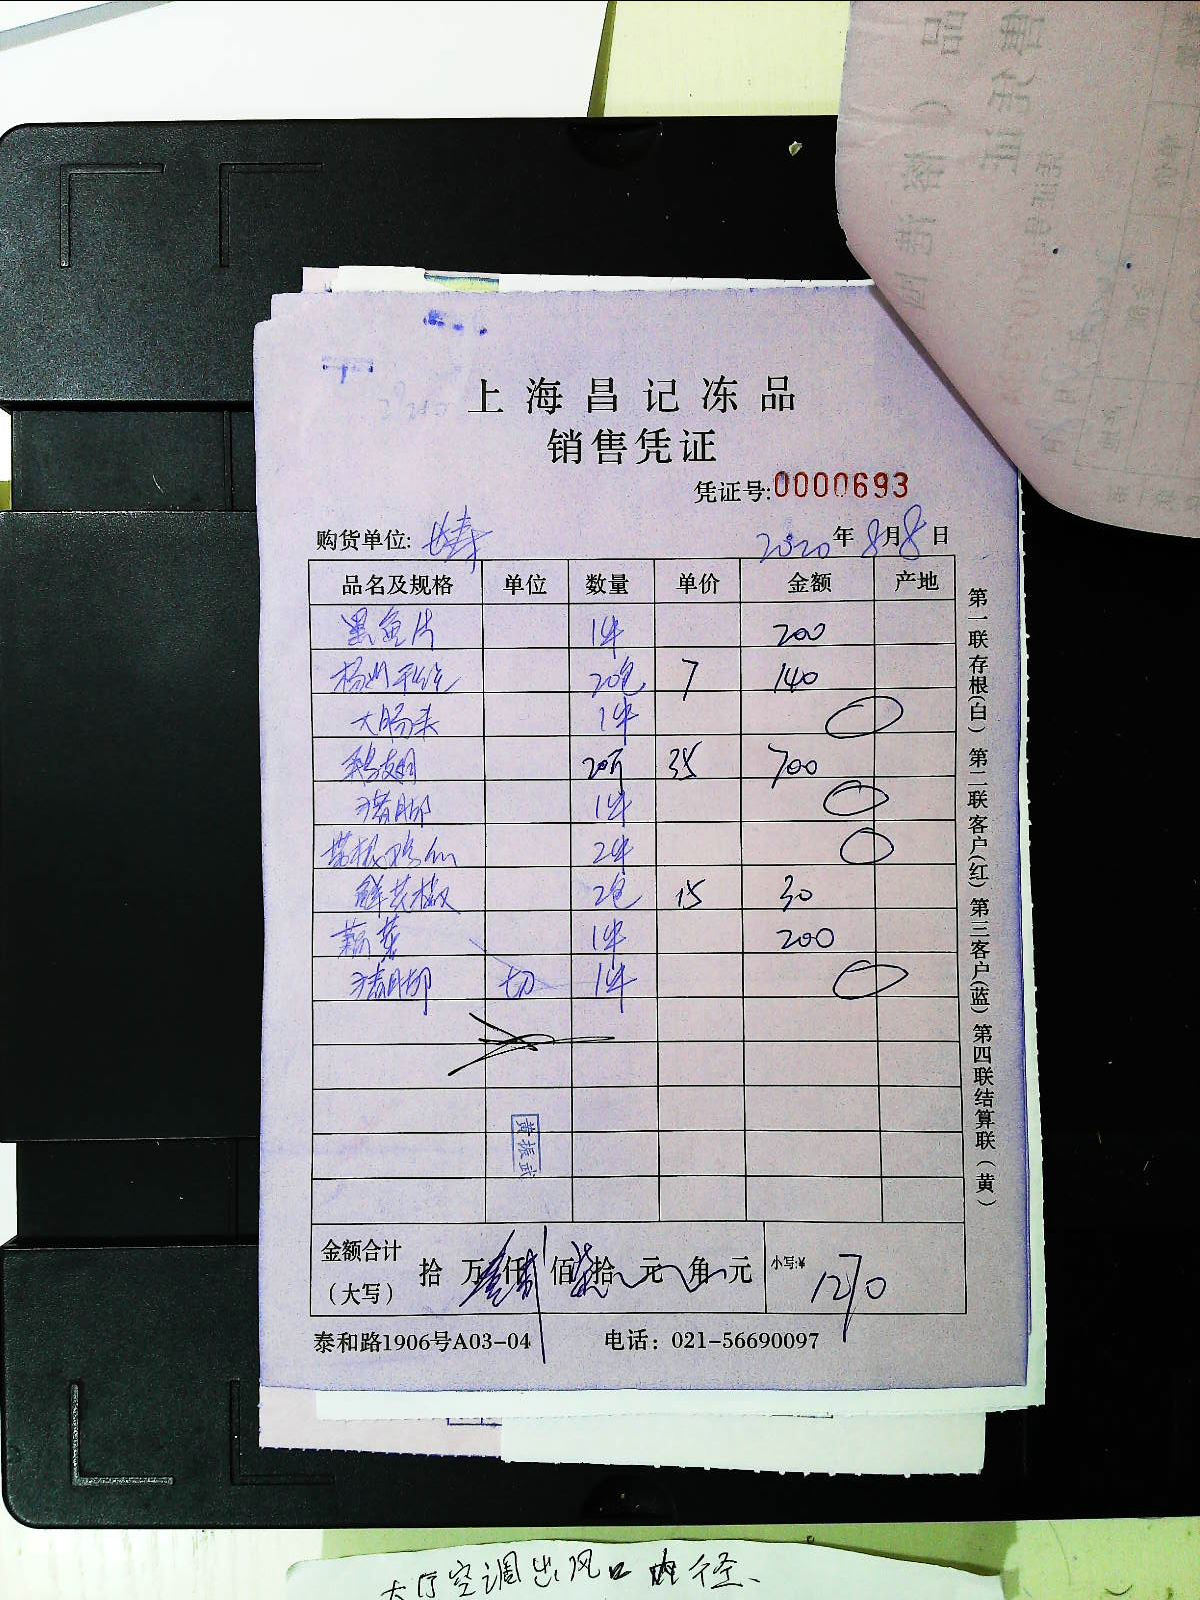 上海昌记冻品
销售凭证
凭证号:0000693
购货单位: 2020年8月8日
品名及规格 单位 数量 单价 金额 产地
黑鱼片 1件 200
扬州干丝 20包 7 140
大肠头 1件
鹅翅 20斤 35 700
猪脚 1件
2件
鲜花椒 2包 15 30
1件 200
猪脚 切 1件
黄振武
金额合计 拾 万壹仟贰佰柒拾 元 角 元 小写:¥ 1270
(大写)
泰和路1906号A03-04 电话: 021-56690097
第一联存根(白) 第二联客户(红) 第三客户(蓝) 第四联结算联(黄)
大厅空调出风口内径、